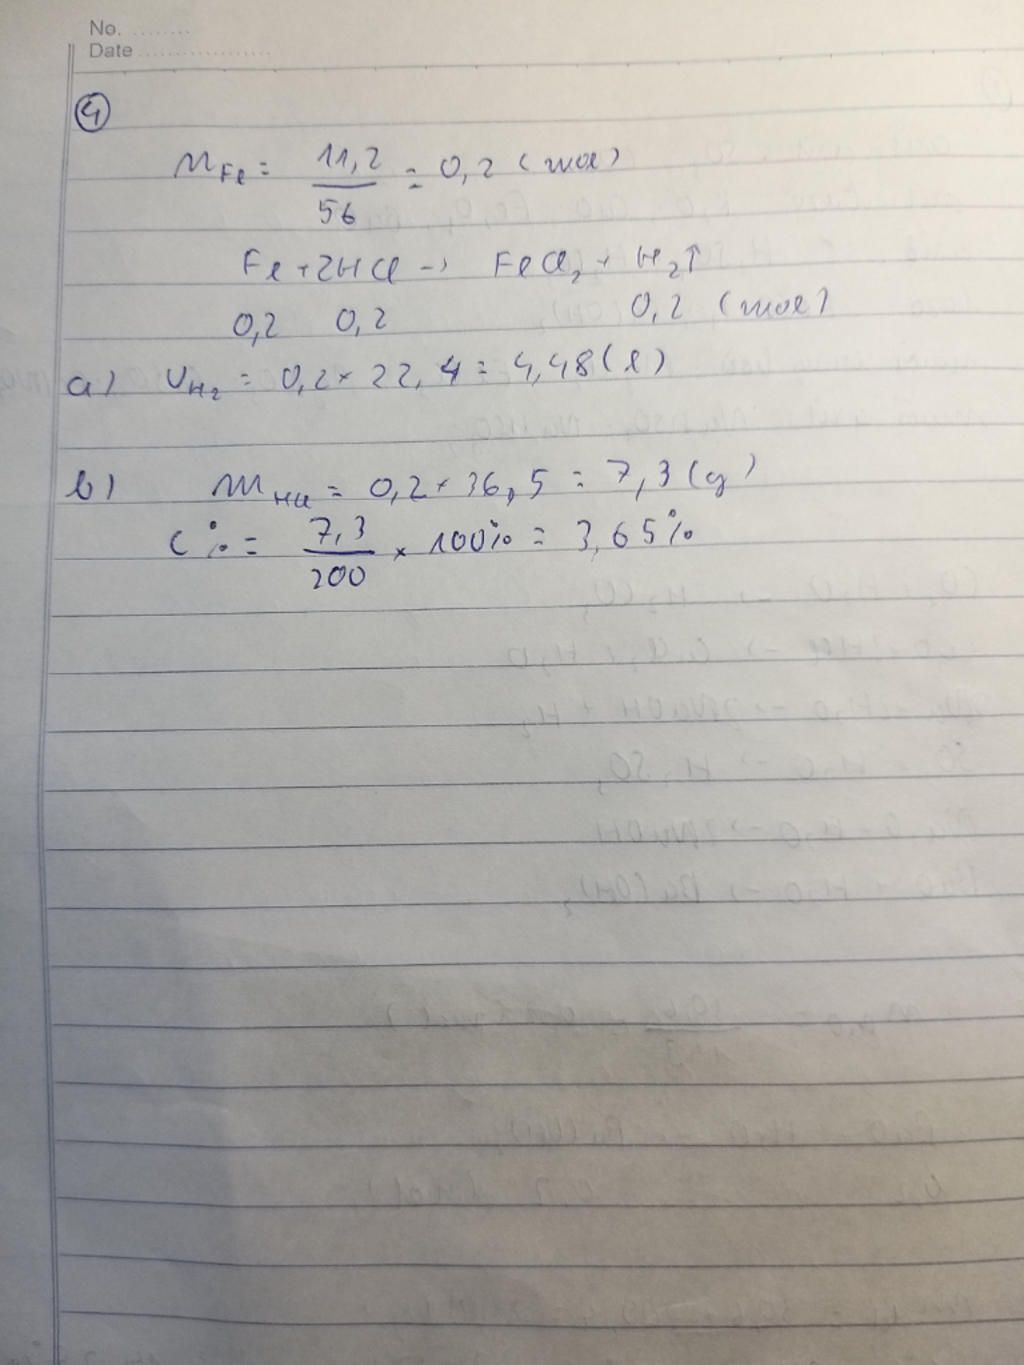 No. ........
Date ...................
4
nFe = 11,2/56 = 0,2 (mol)
Fe + 2HCl → FeCl2 + H2↑
0,2 0,2 0,2 (mol)
a) VH2 = 0,2 × 22,4 = 4,48 (l)
b) mHCl = 0,2 × 36,5 = 7,3 (g)
C% = 7,3/200 × 100% = 3,65%